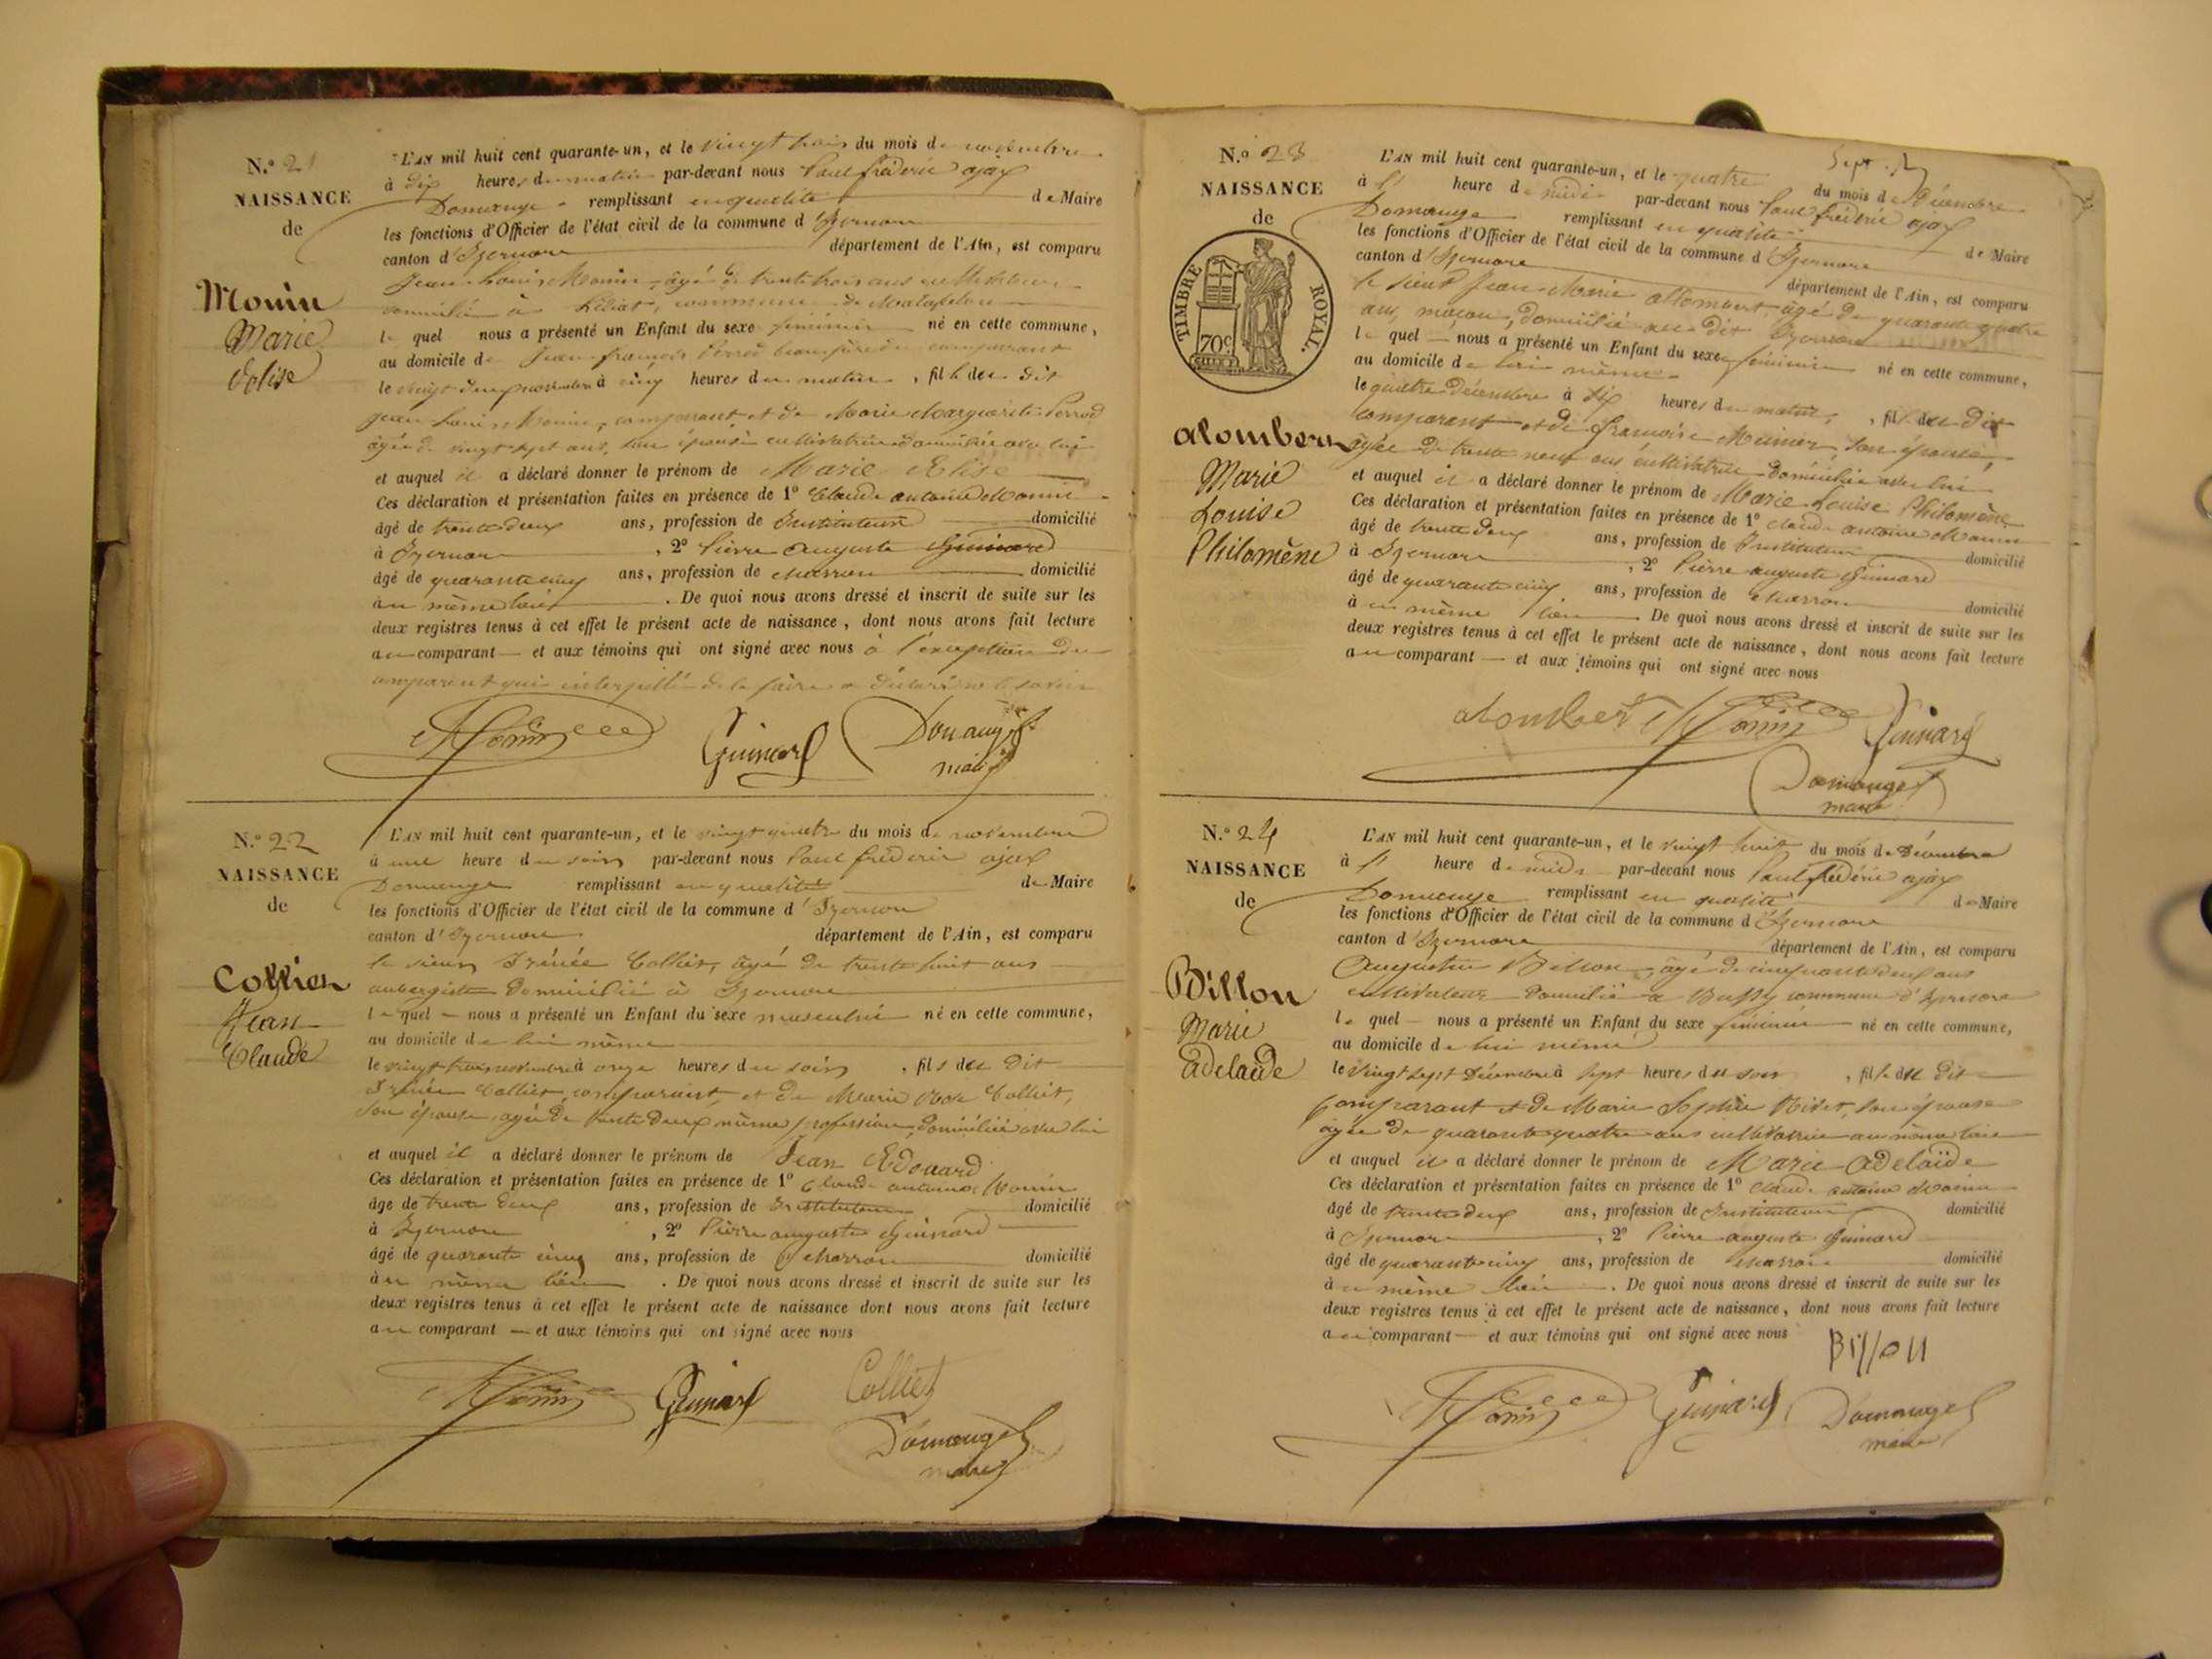 N.º 21
NAISSANCE
de
Monin
Marie
Elise
L'AN mil huit cent quarante-un, et le vingt trois du mois de novembre
à dix heures du matin par-devant nous Paul frédéric ajax
Domange remplissant en qualité de Maire
les fonctions d'Officier de l'état civil de la commune d'Izernore
canton d'Izernore département de l'Ain, est comparu
Jean Louis Monin, âgé de trente trois ans cultivateur
domicilié à commune de Matafelon
le quel nous a présenté un Enfant du sexe féminin né en cette commune,
au domicile de Jean françois Perrod beau frère du comparant
le vingt deux novembre à cinq heures du matin, fille du dit
Jean Louis Monin, comparant et de Marie Marguerite Perrod
âgée de vingt sept ans, son épouse cultivatrice domiciliée avec lui
et auquel il a déclaré donner le prénom de Marie Elise
Ces déclaration et présentation faites en présence de 1º Claude antoine Monin
âgé de trente deux ans, profession de Instituteur domicilié
à Izernore, 2º Pierre auguste Guinard
âgé de quarante cinq ans, profession de charron domicilié
au même lieu. De quoi nous avons dressé et inscrit de suite sur les
deux registres tenus à cet effet le présent acte de naissance, dont nous avons fait lecture
au comparant et aux témoins qui ont signé avec nous à l'exception du
comparant qui interpellé de le faire a déclaré ne le savoir
Monin Guinard Domange
maire
N.º 22
NAISSANCE
de
Colliet
Jean
Claude
L'AN mil huit cent quarante-un, et le vingt quatre du mois de novembre
à une heure du soir par-devant nous Paul frédéric ajax
Domange remplissant en qualité de Maire
les fonctions d'Officier de l'état civil de la commune d'Izernore
canton d'Izernore département de l'Ain, est comparu
le sieur Irénée Colliet, âgé de trente huit ans
aubergiste domicilié à Izernore
le quel nous a présenté un Enfant du sexe masculin né en cette commune,
au domicile de lui même
le vingt trois novembre à onze heures du soir, fils du dit
Irénée Colliet, comparant, et de Marie Rose Colliet,
son épouse, agée de trente deux même profession, domiciliée avec lui
et auquel il a déclaré donner le prénom de Jean Edouard
Ces déclaration et présentation faites en présence de 1º Claude antoine Monin
âge de trente deux ans, profession de Instituteur domicilié
à Izernore, 2º Pierre auguste Guinard
âgé de quarante cinq ans, profession de charron domicilié
au même lieu. De quoi nous avons dressé et inscrit de suite sur les
deux registres tenus à cet effet le présent acte de naissance dont nous avons fait lecture
au comparant et aux témoins qui ont signé avec nous
Monin Guinard Colliet
Domange
maire
N.º 23
NAISSANCE
de
TIMBRE ROYAL.
70c
alombert
Marie
Louise
Philomène
L'AN mil huit cent quarante-un, et le quatre du mois de Décembre
à l' heure de midi par-devant nous Paul frédéric ajax
Domange remplissant en qualité de Maire
les fonctions d'Officier de l'état civil de la commune d'Izernore
canton d'Izernore département de l'Ain, est comparu
le sieur Jean Marie allombert, âgé de quarante quatre
ans, maçon, domicilié au dit Izernore
le quel nous a présenté un Enfant du sexe féminin né en cette commune,
au domicile de lui même
le quatre décembre à dix heures du matin, fille du dit
comparant et de françoise Meunier, son épouse,
âgée de trente neuf ans cultivatrice domiciliée avec lui
et auquel il a déclaré donner le prénom de Marie Louise Philomène
Ces déclaration et présentation faites en présence de 1º claude antoine Monin
âgé de trente deux ans, profession de Instituteur domicilié
à Izernore, 2º Pierre auguste Guinard
âgé de quarante cinq ans, profession de charron domicilié
au même lieu. De quoi nous avons dressé et inscrit de suite sur les
deux registres tenus à cet effet le présent acte de naissance, dont nous avons fait lecture
au comparant et aux témoins qui ont signé avec nous
alombert Monin Guinard
Domange
maire
N.º 24
NAISSANCE
de
Billon
Marie
adelaïde
L'AN mil huit cent quarante-un, et le vingt huit du mois de Décembre
à l' heure de midi par-devant nous Paul frédéric ajax
Domange remplissant en qualité de Maire
les fonctions d'Officier de l'état civil de la commune d'Izernore
canton d'Izernore département de l'Ain, est comparu
Augustin Billon, âgé de cinquante deux ans
cultivateur domicilié à Bussy commune d'Izernore
le quel nous a présenté un Enfant du sexe féminin né en cette commune,
au domicile de lui même
le vingt sept Décembre à sept heures du soir, fille du dit
comparant et de Marie Sophie, son épouse
âgée de quarante quatre ans cultivatrice au même lieu
et auquel il a déclaré donner le prénom de Marie adelaïde
Ces déclaration et présentation faites en présence de 1º claude antoine Monin
âgé de trente deux ans, profession de Instituteur domicilié
à Izernore, 2º Pierre auguste Guinard
âgé de quarante cinq ans, profession de charron domicilié
au même lieu. De quoi nous avons dressé et inscrit de suite sur les
deux registres tenus à cet effet le présent acte de naissance, dont nous avons fait lecture
au comparant et aux témoins qui ont signé avec nous
Billon
Monin Guinard Domange
maire